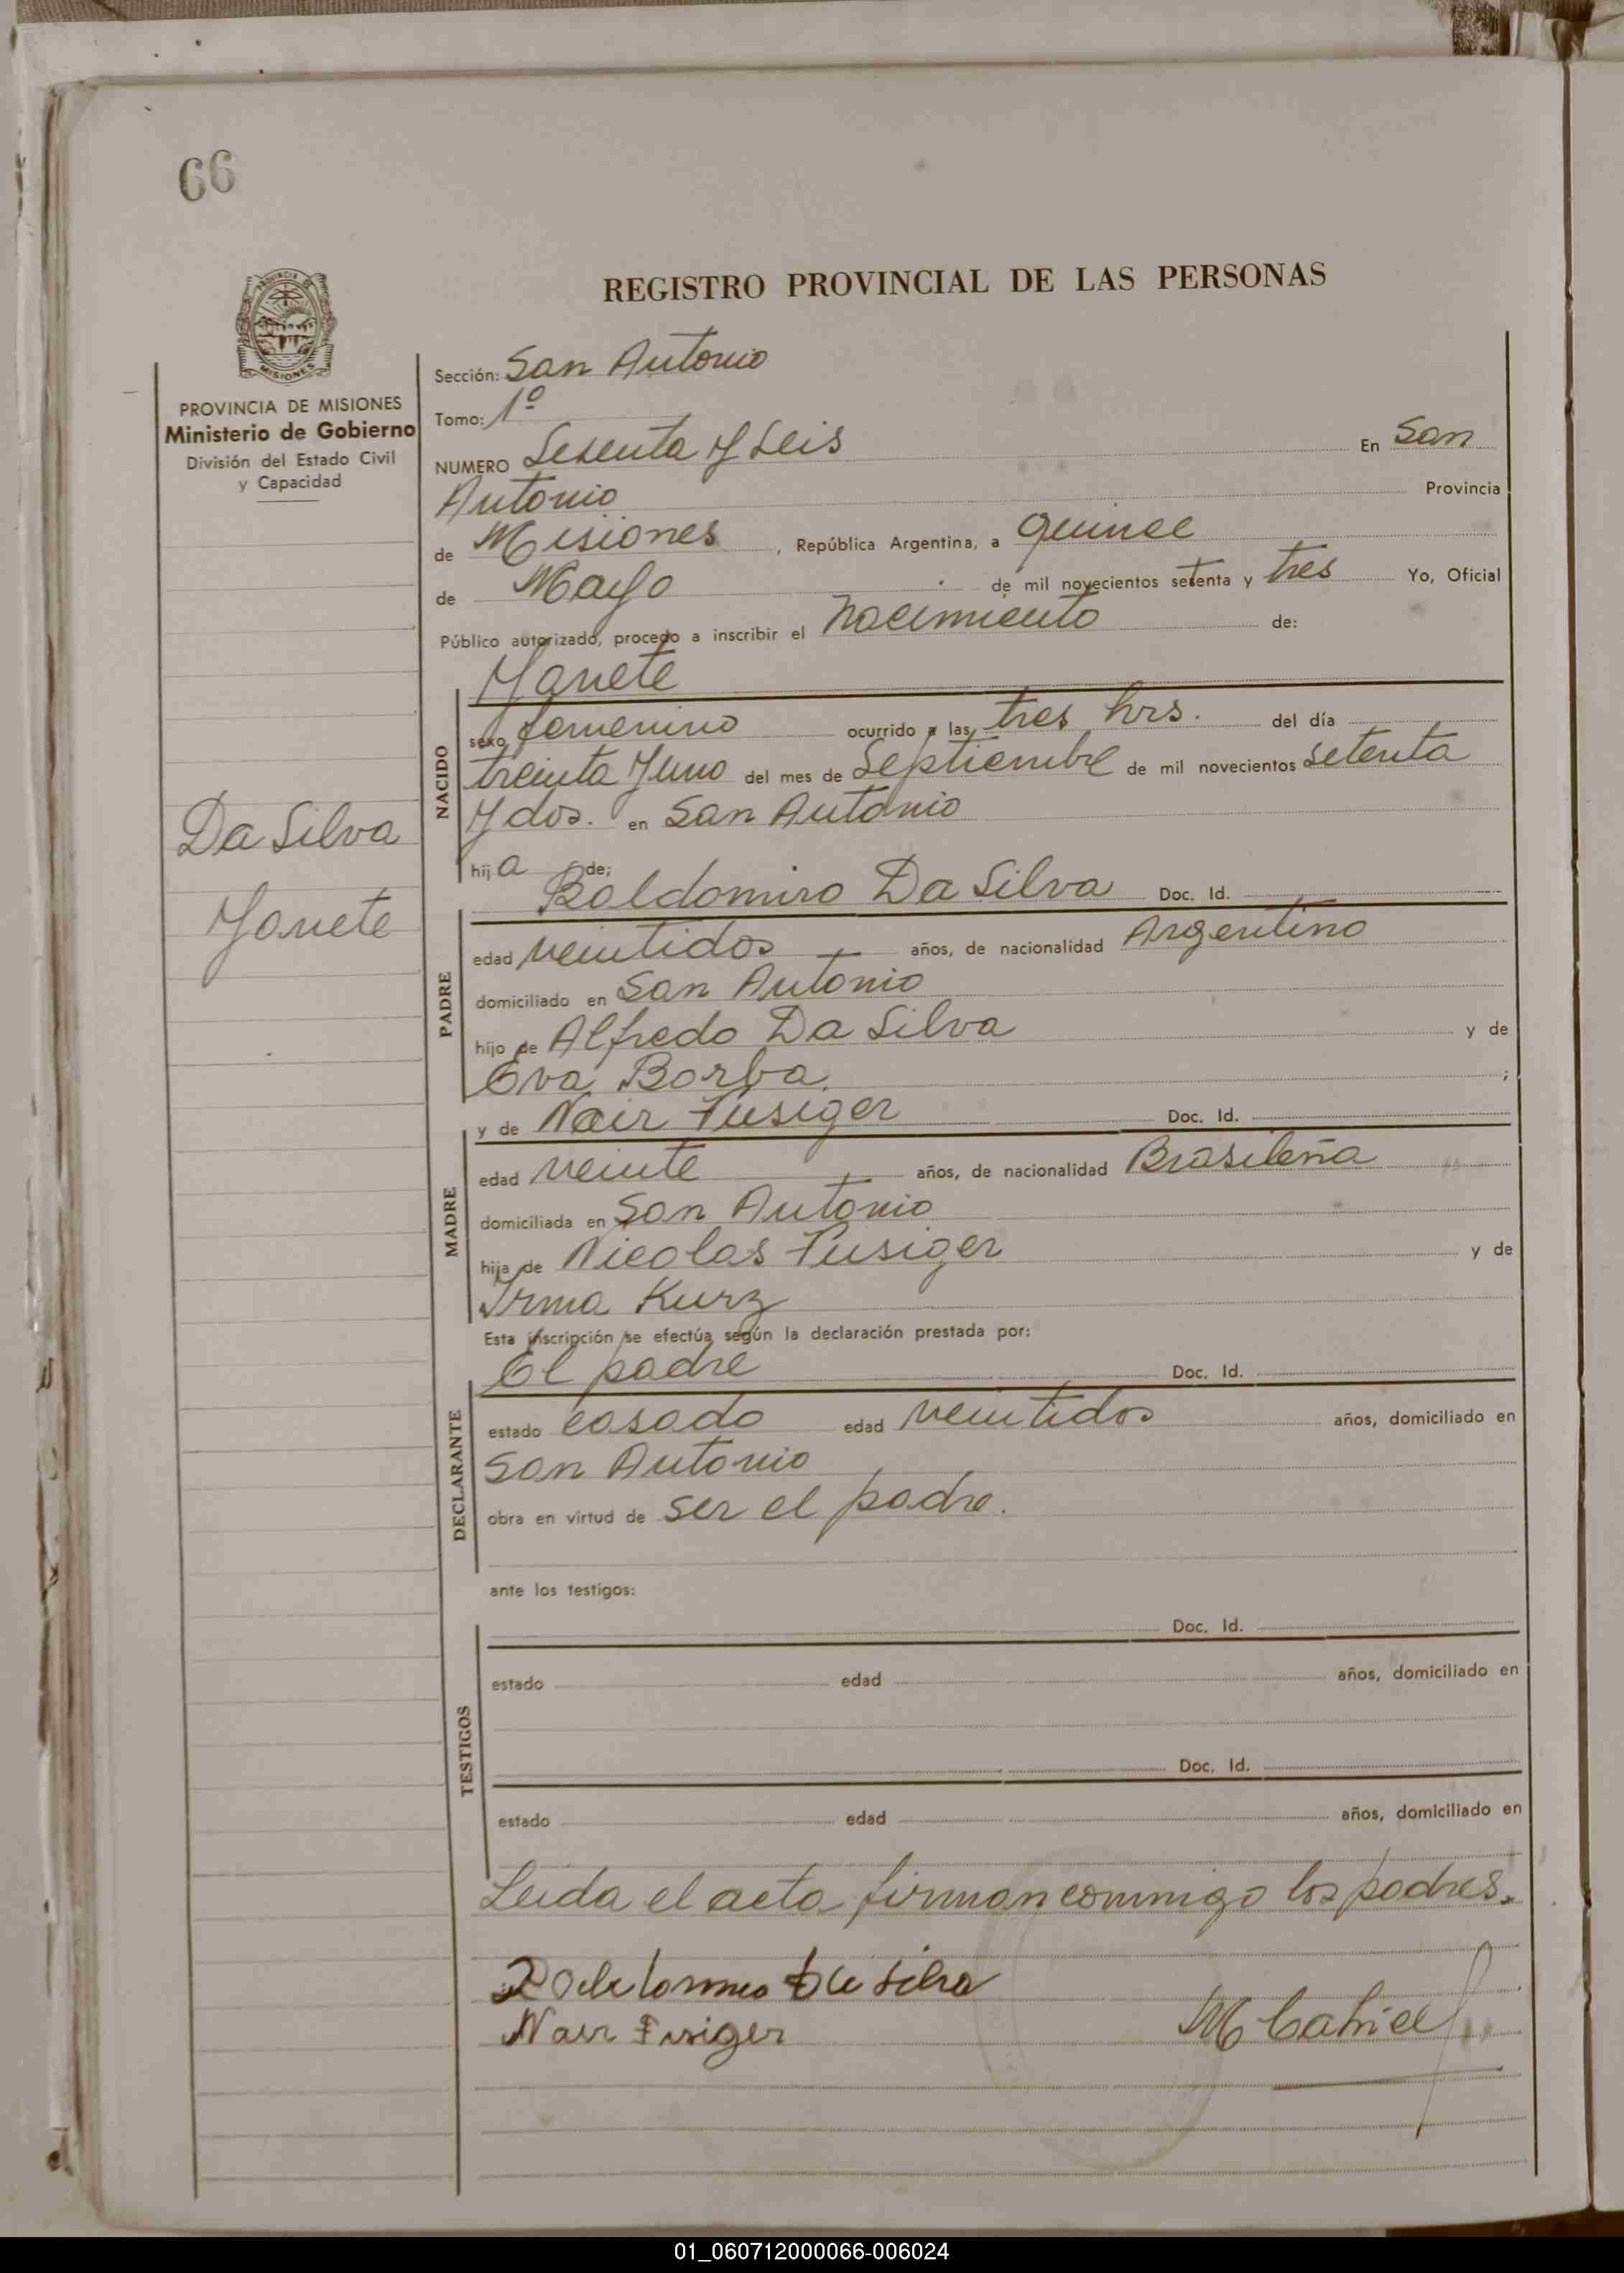 66
REGISTRO PROVINCIAL DE LAS PERSONAS
PROVINCIA DE MISIONES
MISIONES
PROVINCIA DE MISIONES
Ministerio de Gobierno
División del Estado Civil
y Capacidad
Da Silva
Yanete
Sección: San Antonio
Tomo: 1º
NUMERO Sesenta y Seis En San
Antonio Provincia
de Misiones, República Argentina, a quince
de Mayo de mil novecientos setenta y tres Yo, Oficial
Público autorizado, procedo a inscribir el nacimiento de:
Yanete
NACIDO
sexo femenino ocurrido a las tres hrs. del día
treinta y uno del mes de Septiembre de mil novecientos setenta
y dos. en San Antonio
hija de;
Baldomiro Da Silva Doc. Id.
PADRE
edad veintidos años, de nacionalidad Argentino
domiciliado en San Antonio
hijo de Alfredo Da Silva y de
Eva Borba. ;
y de Nair Fusiger Doc. Id.
MADRE
edad veinte años, de nacionalidad Brasileña
domiciliada en San Antonio
hija de Nicolas Fusiger y de
Irma Kurz
Esta inscripción se efectúa según la declaración prestada por:
El padre Doc. Id.
DECLARANTE
estado casado edad veintidos años, domiciliado en
San Antonio
obra en virtud de ser el padre.
ante los testigos:
Doc. Id.
TESTIGOS
estado edad años, domiciliado en
Doc. Id.
estado edad años, domiciliado en
Leida el acta firman conmigo los padres.
da silva
Nair Fusiger
01_060712000066-006024